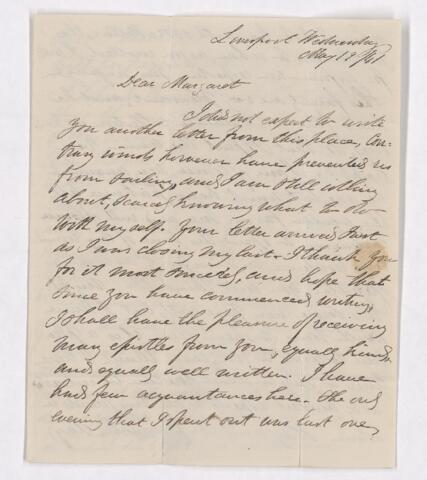 Liverpool Wednesday
May
Dear Margaret
I did not expect to write
you another letter from this place, Con-
trary winds however have prevented us
from sailing, and I am still idling
about, scarce knowing what to do
with myself. Your letter arrived just
as I was closing my last. I thank you
for it most sincerely, and hope that
since you have commenced writing,
I shall have the pleasure of receiving
many epistles from you, equally kind,
and equally well written. I have
had few acquaintances here. The only
evening that I spent out was last one,